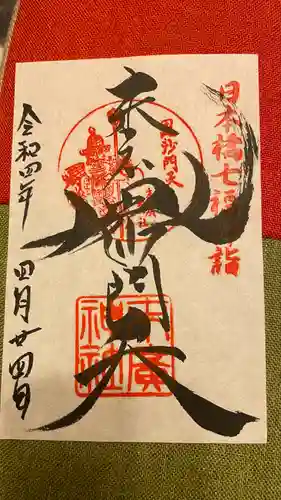 日本橋七福神詣
毘沙門天
門天
末廣
神社
令和四年
四月廿四日